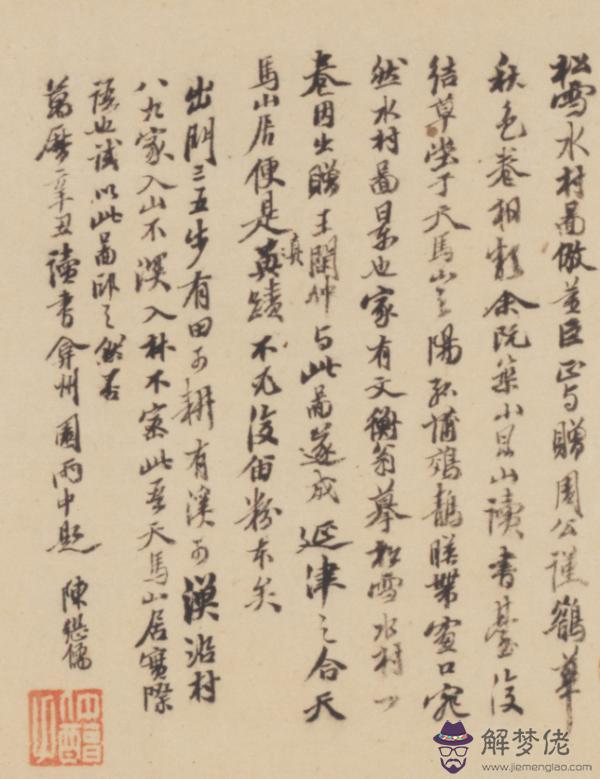 松雪水村啚倣董巨正与贈周公謹鵲華
秋色卷相類余既築小昆山讀書臺復
結草堂于天馬山之陽菰蒲映帶窗口宛
然水村啚景也家有文衡翁摹松雪水村一
卷因出贈王閏仲与此啚遂成延津之合天
馬山居便是真蹟不必復留粉本矣
出門三五步有田可耕有溪可漁沿村
八九家入山不深入林不密此吾天馬山居實際
語也試以此啚印之然否
萬曆辛丑讀書弇州園雨中題 陳繼儒
解梦佬
www.jiemenglao.com